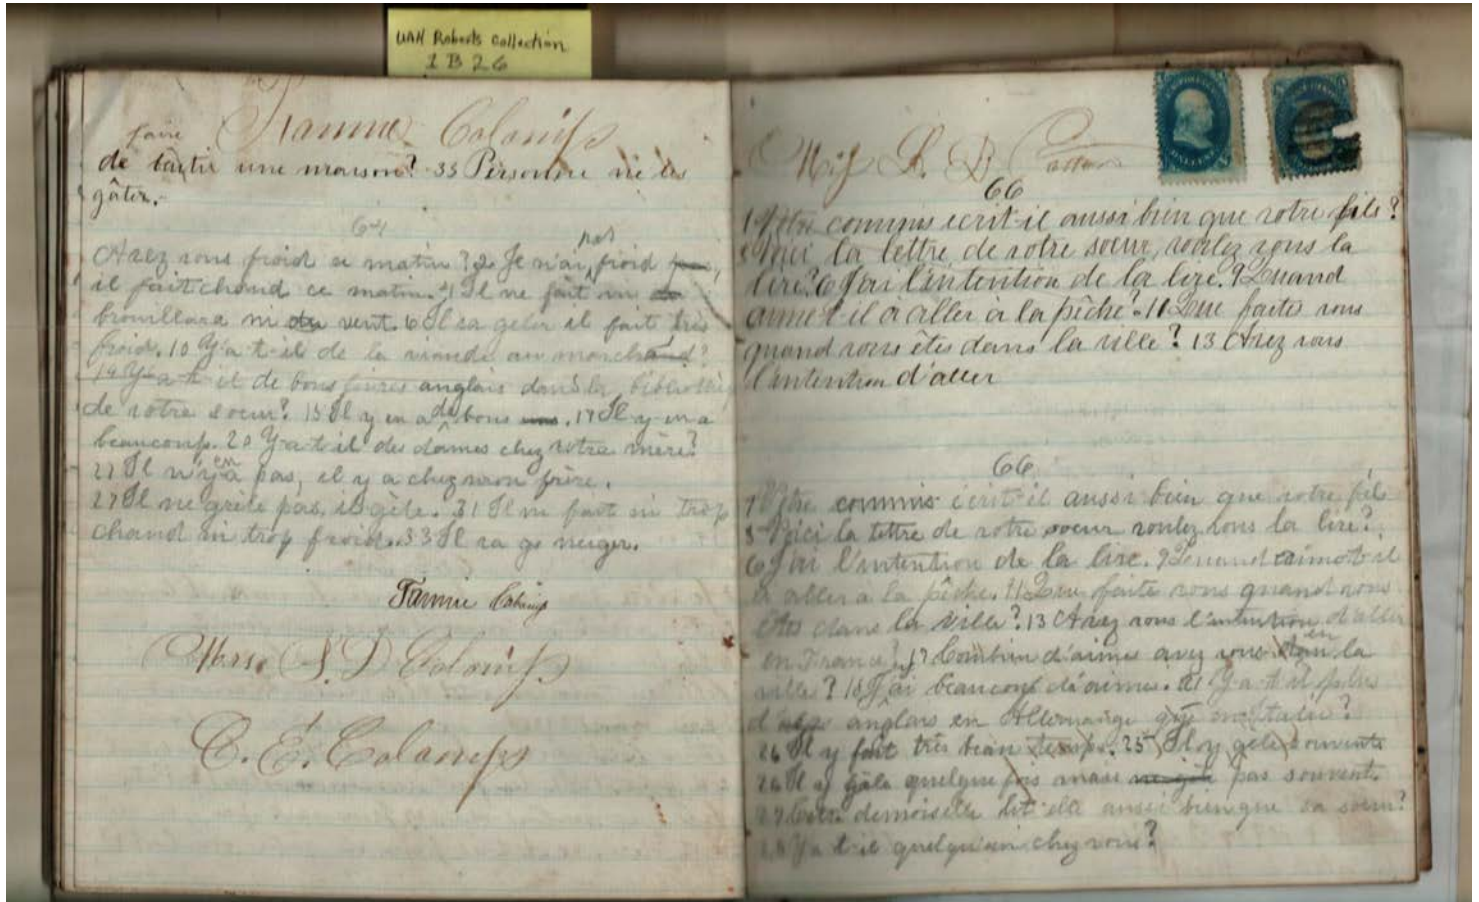 UAH Roberts Collection
1 B 26
Fannie
faire
de bâtir une maison? 33 Personne ne les
gâter.
64
Avez vous froid ce matin? 2 Je n'ai pas froid
il fait chaud ce matin. 4 Il ne fait ni
brouillard ni vent. 6 Il va geler il fait très
froid. 10 Y-a-t-il de la viande au marchand?
14 Y-a-t-il de bons livres anglais dans la
de votre soeur? 15 Il y en a de bons. 17 Il y en a
beaucoup. 20 Y-a-t-il des dames chez votre mère?
Il n'y en a pas, il y a chez mon frère.
27 Il ne grêle pas, il gèle. 31 Il ne fait ni trop
chaud ni trop froid. 33 Il va neiger.
Fannie
Mrs.
C. E.
66
1 Votre commis ecrit-il aussi bien que votre fils?
5 Voici la lettre de votre soeur, voulez vous la
lire? 6 J'ai l'intention de la lire. 9 Quand
aime t-il à aller à la pêche. 11 Que faites vous
quand vous êtes dans la ville? 13 Avez vous
l'intention d'aller
66
1 Votre commis écrit-il aussi bien que votre fils
5 Voici la lettre de votre soeur voulez vous la lire?
6 J'ai l'intention de la lire. 9 Quand aime t-il
à aller à la pêche. 11 Que faite vous quand vous
êtes dans la ville? 13 Avez vous l'intention d'aller
en France? 17 Combien d'aimes avez vous en la
ville? 18 J'ai beaucoup d'aimes. 21 Y-a-t-il plus
d'anglais en Allemange
26 Il y fait très beau temps. 25 Il y gele souvents
26 Il y gèle quelque fois mais pas souvent.
27 Cette demoiselle lit-elle aussi bien que sa soeur?
28 Y a t-il quelqu'un chez vous?